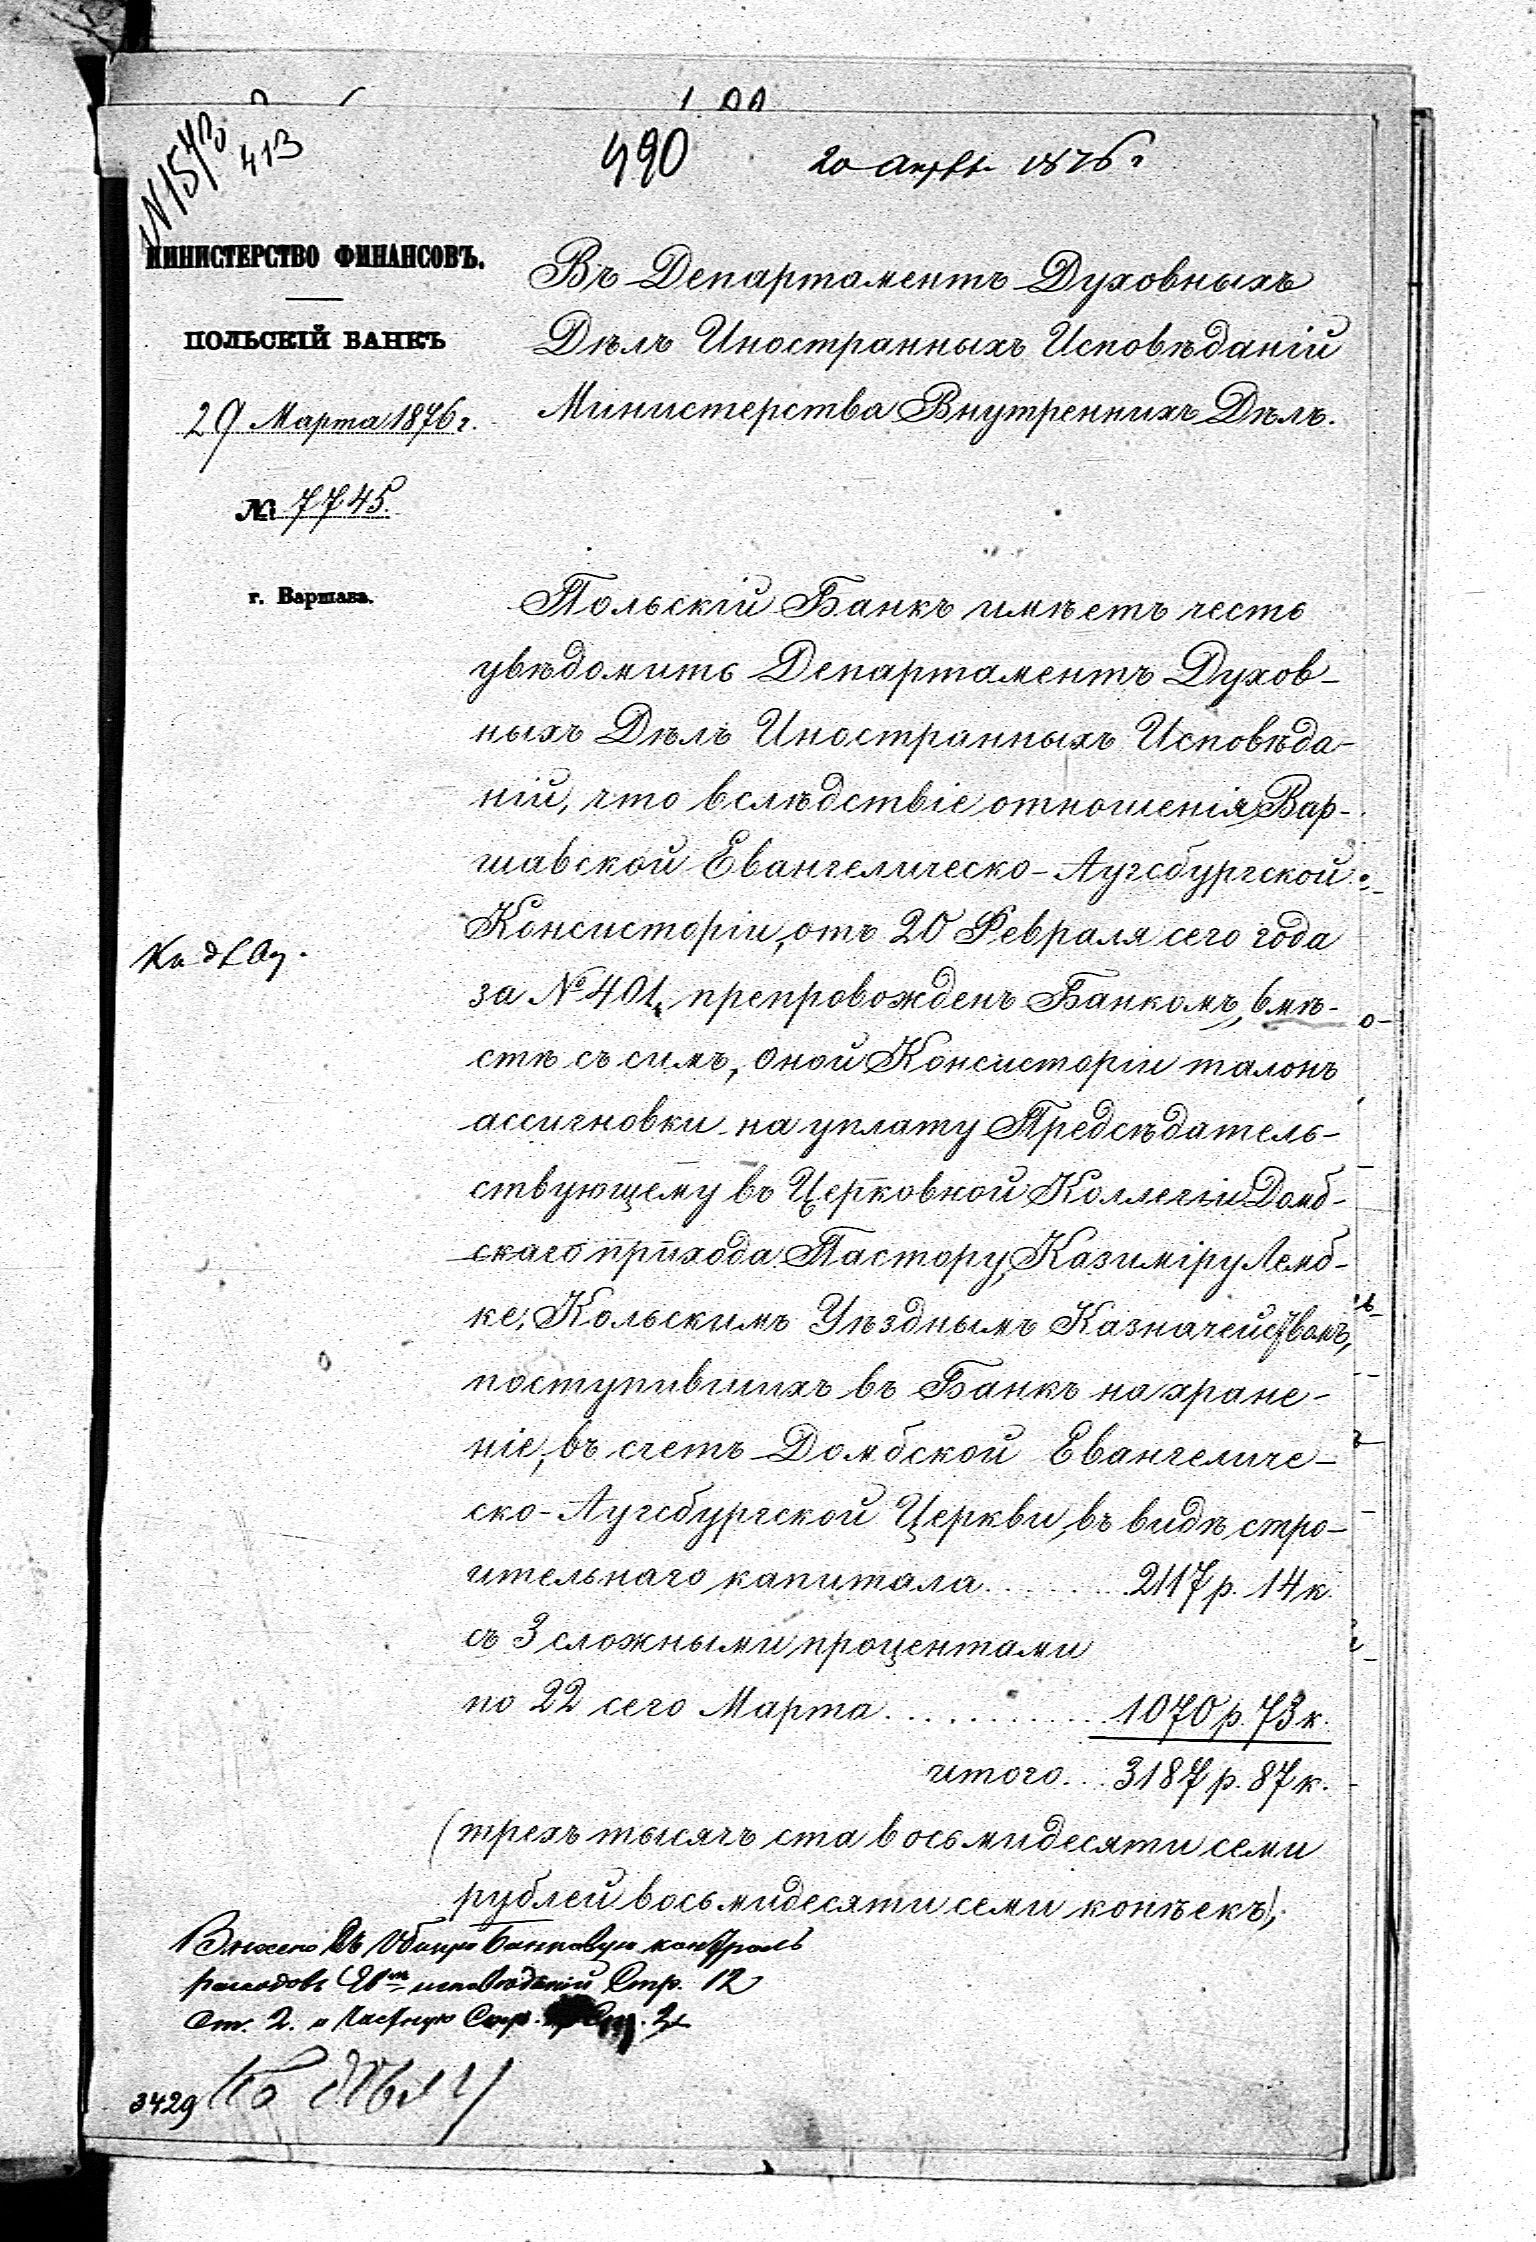 №1570
413
490
20 Апрѣл. 1876 г
МИНИСТЕРСТВО ФИНАНСОВЪ.
ПОЛЬСКІЙ БАНКЪ
29 Марта 1876 г.
№ 7745.
г. Варшава.
Въ Департаментъ Духовныхъ
Дѣлъ Иностранныхъ Исповѣданій
Министерства Внутреннихъ Дѣлъ.
Польскій Банкъ имѣетъ честь
увѣдомить Департаментъ Духов-
ныхъ Дѣлъ Иностранныхъ Исповѣда-
ній, что вслѣдствіе отношенія Вар-
шавской Евангелическо-Аугсбургской
Консисторіи, отъ 20 Февраля сего года
за № 401, препровожденъ Банкомъ, вмѣ-
стѣ съ симъ, оной Консисторіи талонъ
ассигновки на уплату Предсѣдатель-
ствующему въ Церковной Коллегіи Домб-
скаго прихода Пастору, Казиміру Лемб-
ке, Кольскимъ Уѣзднымъ Казначействомъ,
поступившихъ въ Банкъ на хране-
ніе, въ счетъ Домбской Евангеличе-
ско-Аугсбургской Церкви, въ видѣ стро-
ительнаго капитала........2117 р. 14 к.
съ 3 сложными процентами
по 22 сего Марта...........1070 р. 73 к.
итого...3187 р. 87 к.
(трехъ тысячъ ста восьмидесяти семи
рублей восьмидесяти семи копѣекъ),
Внесено въ Общую Банковую контроль
расходовъ исповѣданій Стр. 12
Ст. 2. и Частную Стр. Ст. 2
3429